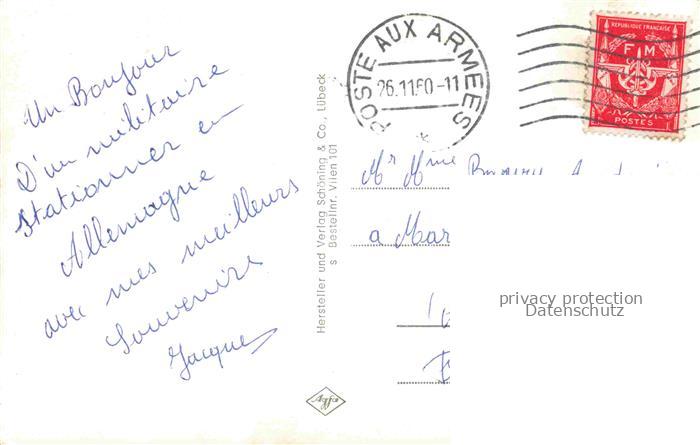 Un Bonjour
D'un militaire
Stationner en
Allemagne
avec mes meilleurs
Souvenirs
Jacques
Hersteller und Verlag Schöning & Co., Lübeck
S Bestellnr. Vilen 101
Agfa
POSTE AUX ARMEES
26.11 60-11
REPUBLIQUE FRANÇAISE
F M
POSTES
Mr Mme
a Mar
privacy protection
Datenschutz